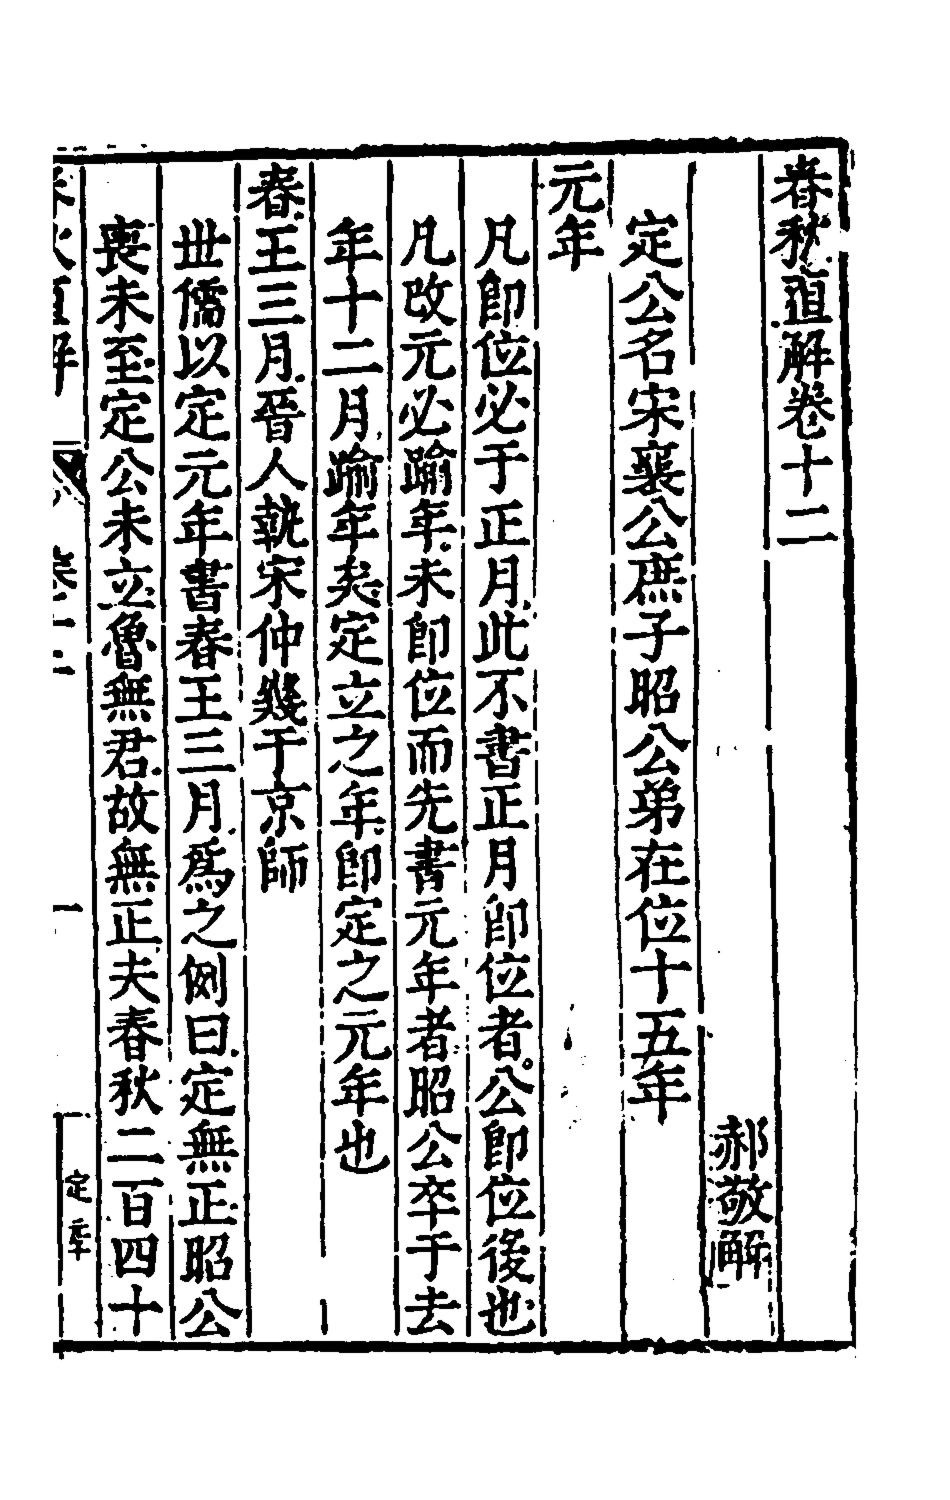 春秋直解卷十二
郝敬解
定公名宋襄公庶子昭公弟在位十五年
元年
凡卽位必于正月此不書正月卽位者公卽位後也
凡改元必踰年未卽位而先書元年者昭公卒于去
年十二月踰年矣定立之年卽定之元年也
春王三月晉人執宋仲幾于京師
世儒以定元年書春王三月爲之例曰定無正昭公
喪未至定公未立魯無君故無正夫春秋二百四十
春秋直解 卷十二 一 定 元年